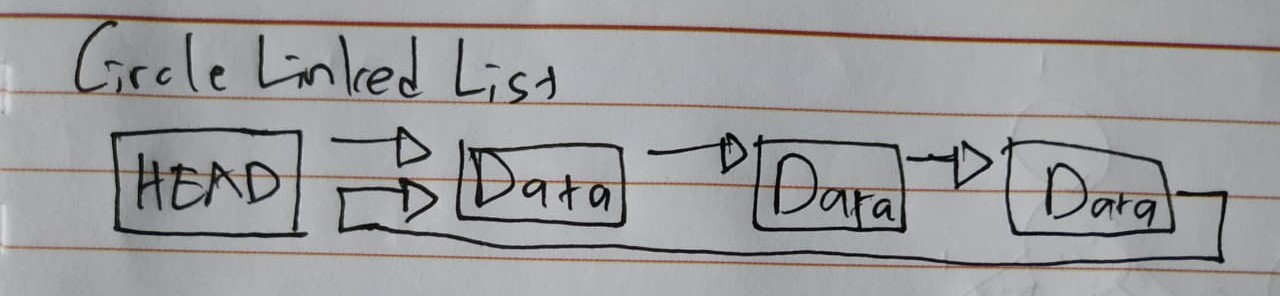 Circle Linked List
HEAD Data Data Data